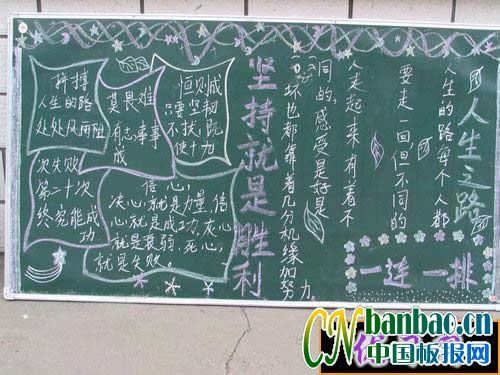 拼搏
人生的路
处处风雨阻
莫畏难
有志事事
成
恒则成
只要坚韧
不拔
使十力
次失败
第二十次
终究能成
功
信心,
决心,就是力量,信
心,就是成功,死心,
就是衰弱,死心,
就是失败。
坚持就是胜利
人生之路
人生的路每个人都
要走一回,但不同的
人走起来有着不
同的,感受是好是
坏也都靠着几分机缘和努力
一连一排
CNbanbao.cn
中国板报网